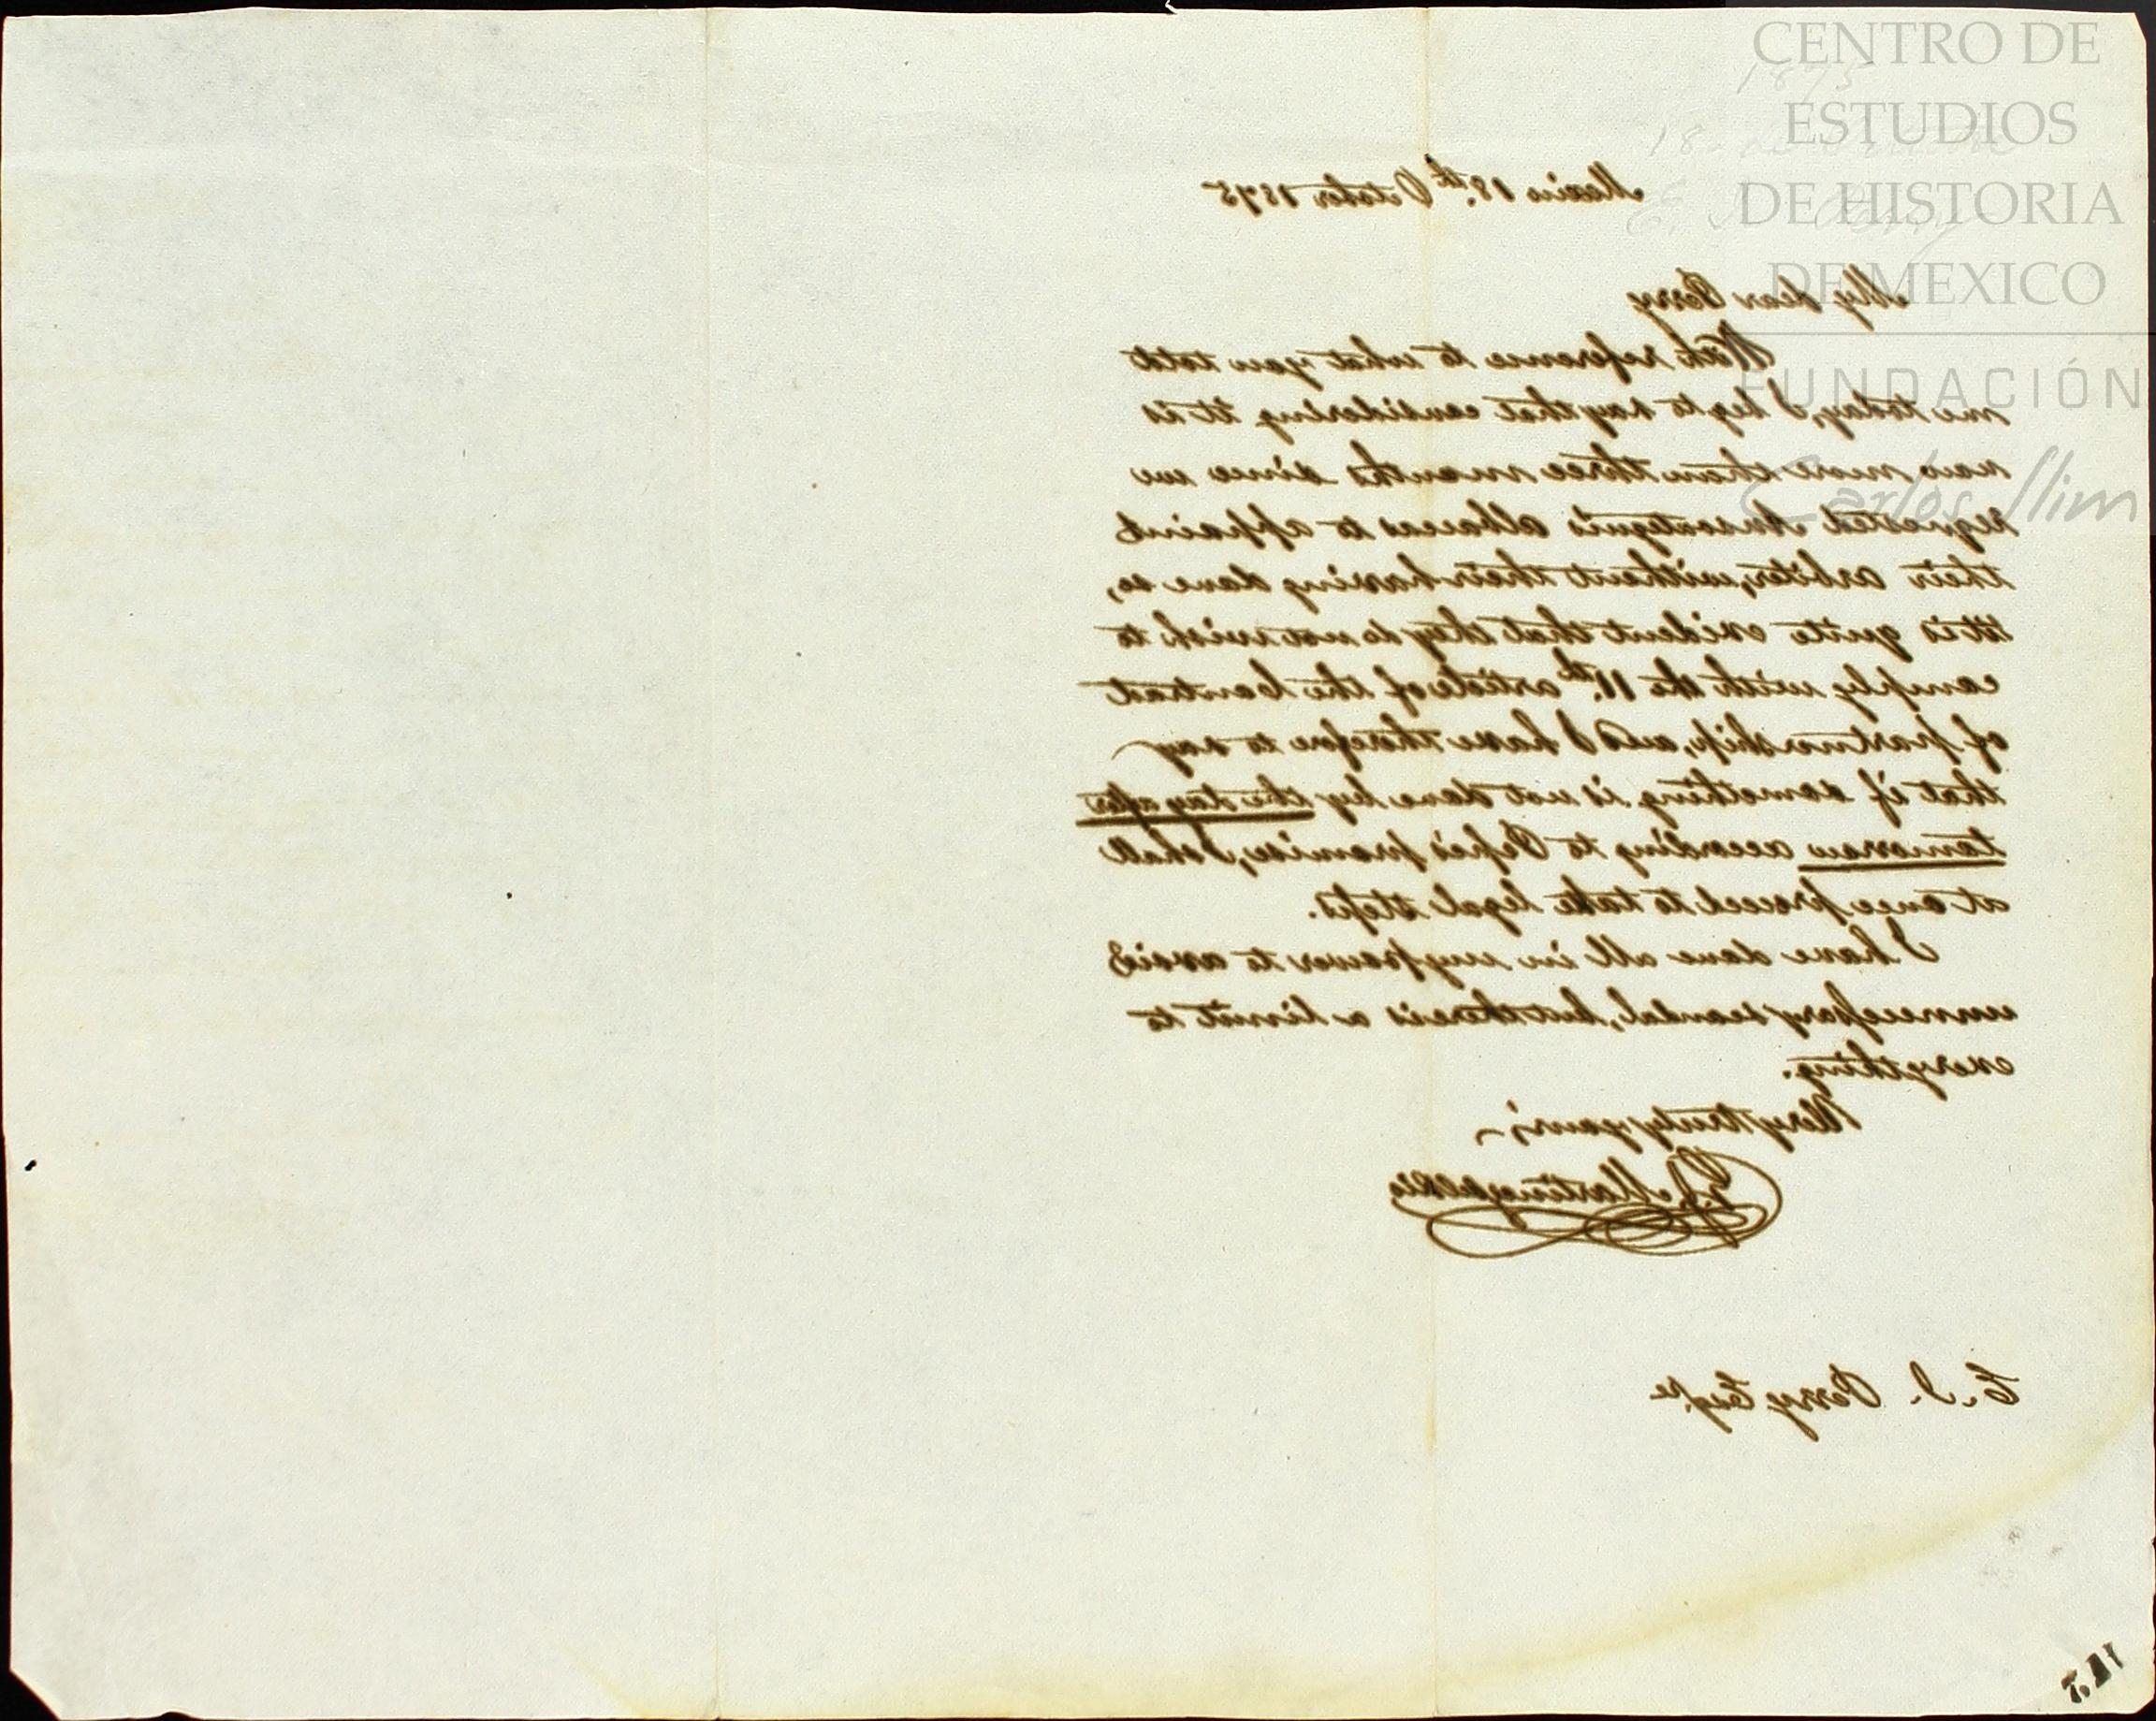 CENTRO DE
ESTUDIOS
DE HISTORIA
DE MEXICO
FUNDACIÓN
Carlos Slim
1875
Mexico 18th October 1875
My dear Perry
With reference to what you told
me today, I beg to say that considering it is
now more than three months since we
requested Ansoategui's albaceas to appoint
their arbiter, without their having done so,
it is quite evident that they do not wish to
comply with the 11th article of the Contract
of partnership, and I have therefore to say
that if something is not done by the day after
tomorrow according to Pepe's promise, I shall
at once proceed to take legal steps.
I have done all in my power to avoid
unnecessary scandal, but there is a limit to
everything.
Very truly yours,
Martinez del Rio
E. J. Perry Esqre